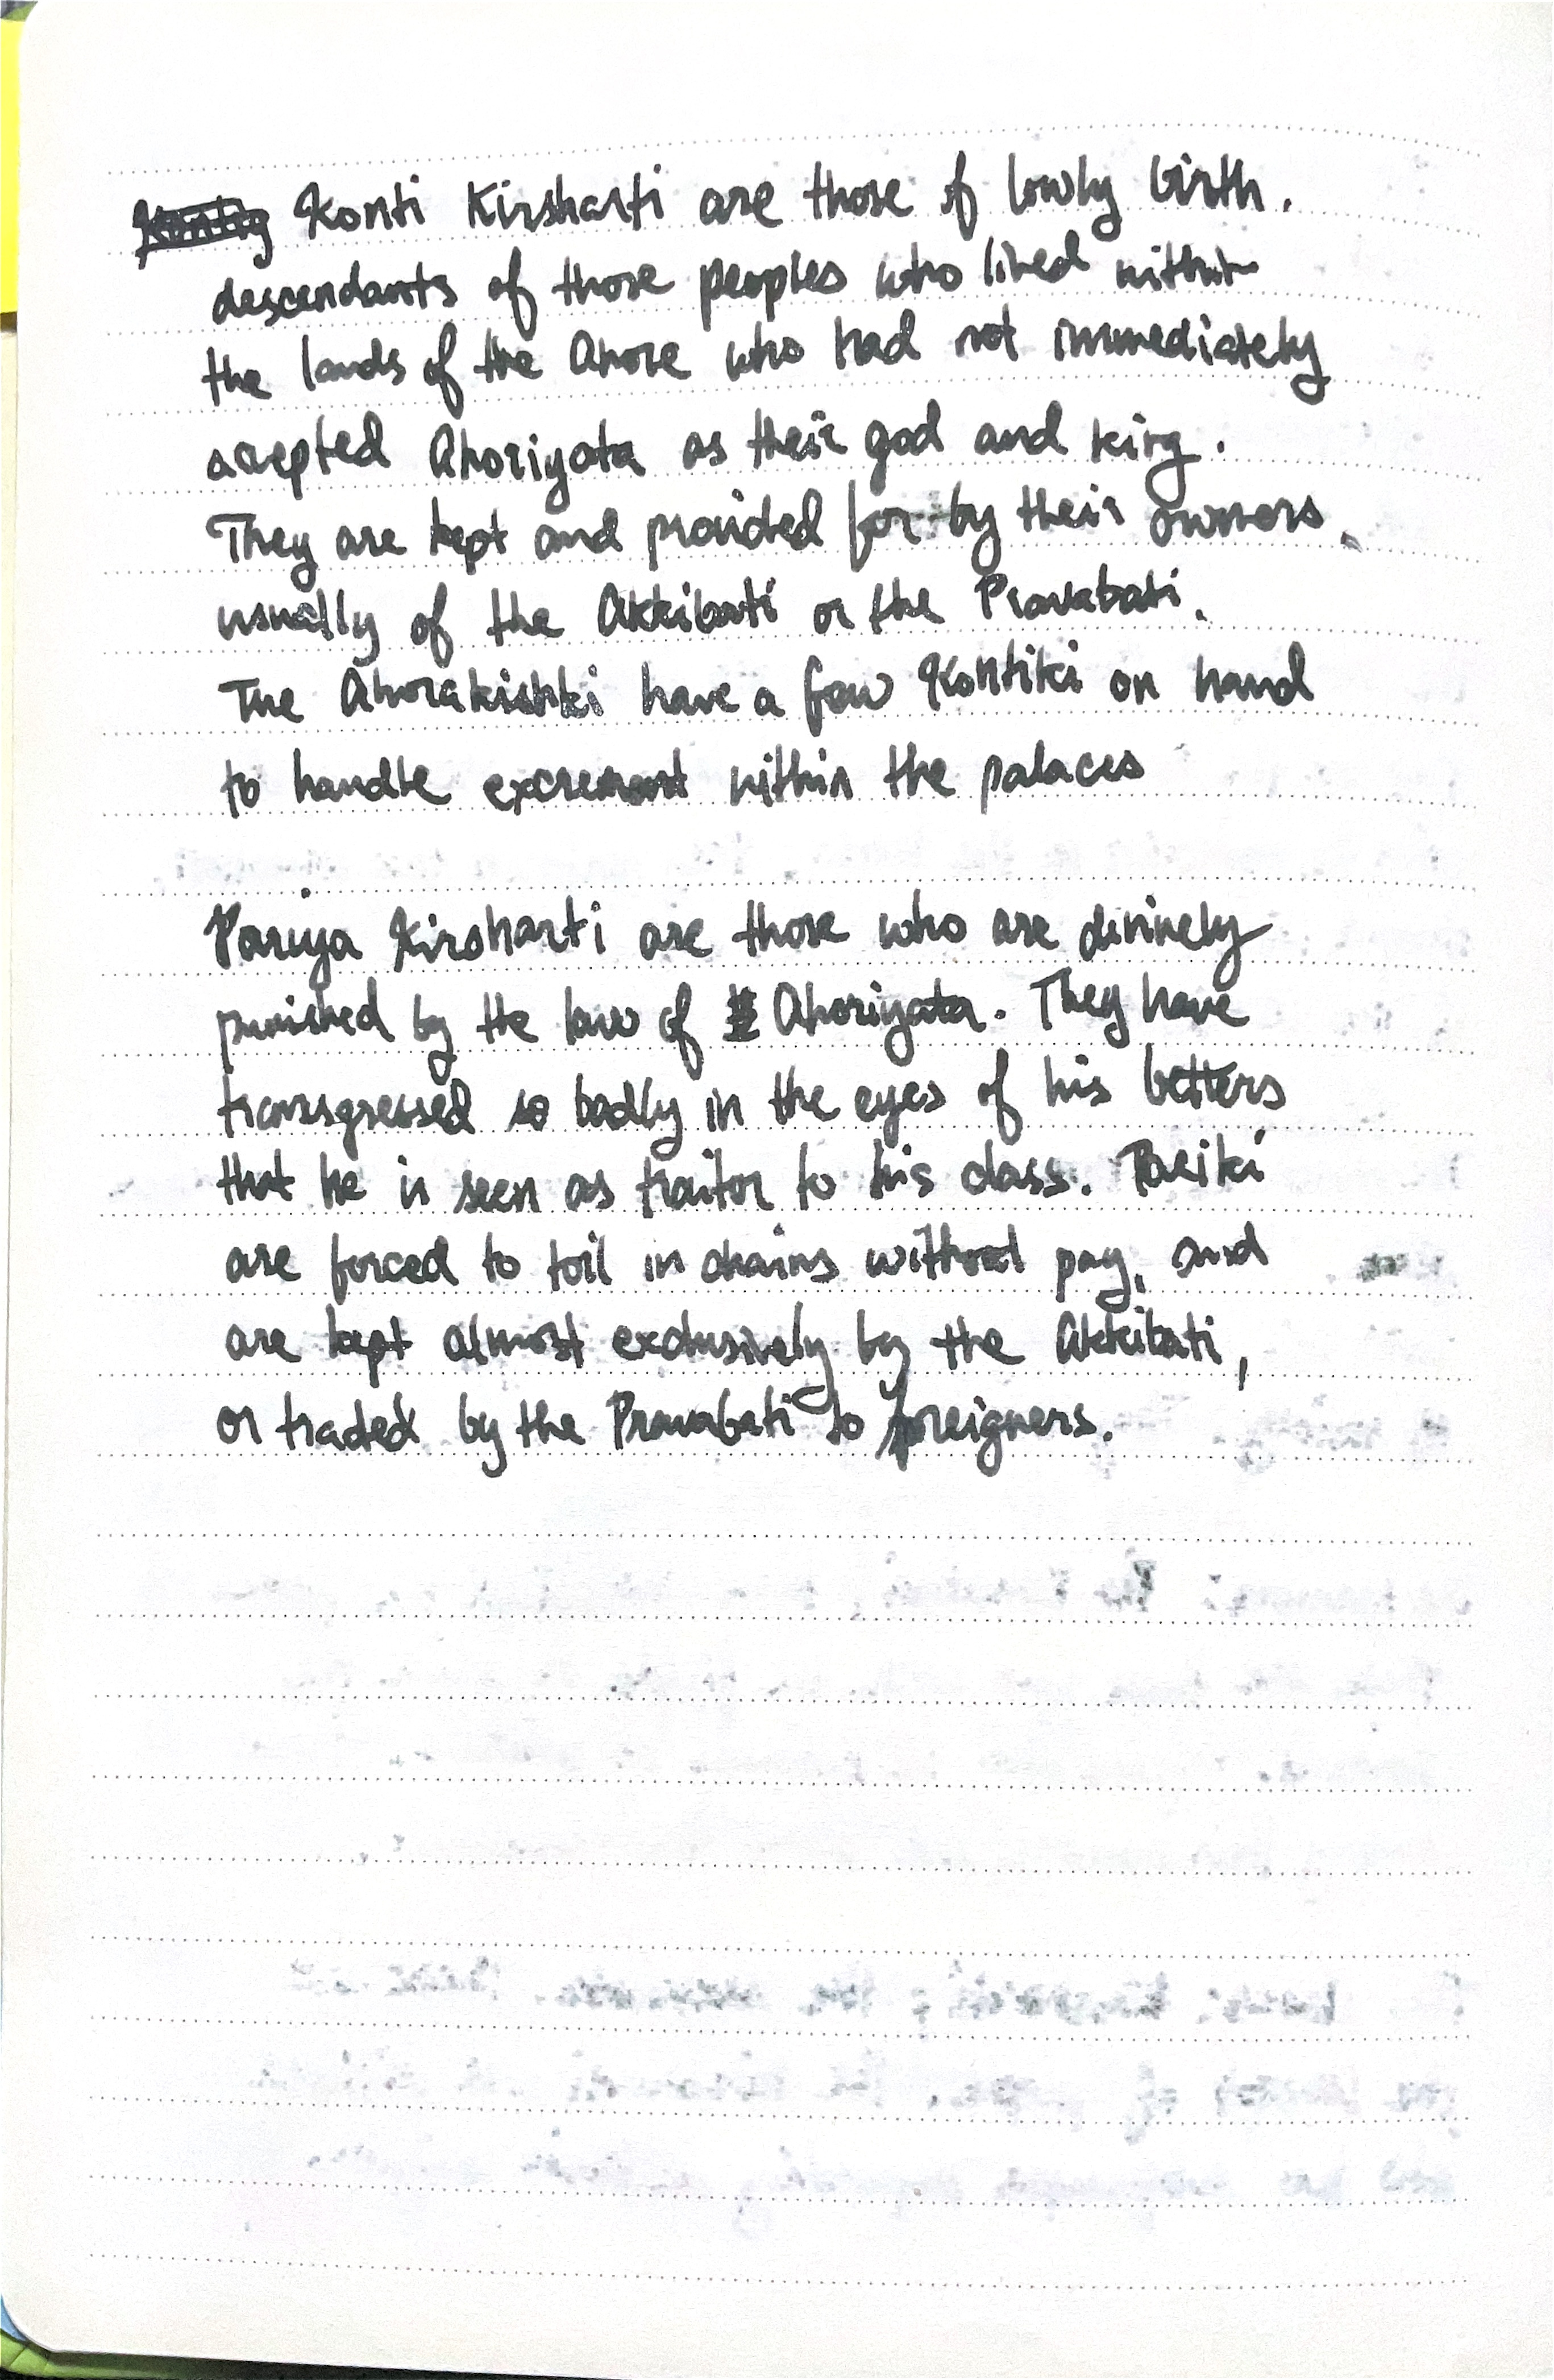 Konti Kirsharti are those of lowly birth.
descendants of those peoples who lived within
the lands of the Ahore who had not immediately
accepted Ahoriyata as their god and king.
They are kept and provided for by their owners,
usually of the Akkibati or the Pravabati.
The Ahorakishki have a few Kontiki on hand
to handle excrement within the palaces
Pariya Kirsharti are those who are divinely
punished by the law of Ahoriyata. They have
transgressed so badly in the eyes of his betters
that he is seen as traitor to his class. Pariki
are forced to toil in chains without pay, and
are kept almost exclusively by the Akkibati,
or traded by the Pravabati to foreigners.